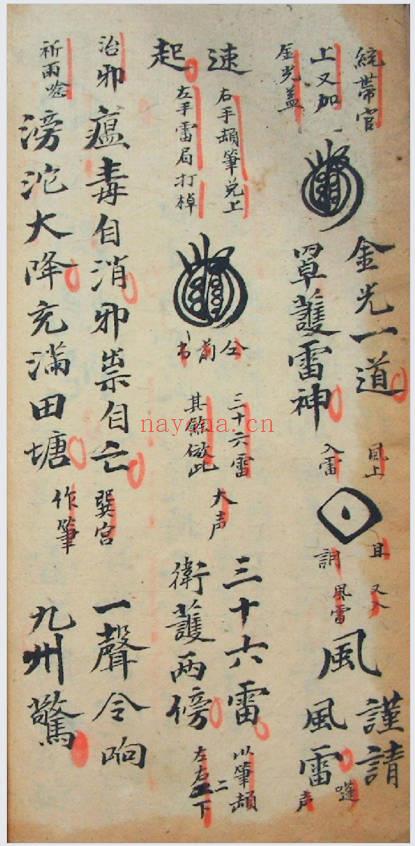 統帶官
上又加
金光蓋
金光一道
罩護雷神
入雷
且又入
風雷
謹請
風
風雷
声
速
起
右手頡筆兑上
左手雷局打棹
仝前书
三十六雷
其餘倣此
大声
三十六雷
衛護兩傍
以筆頡
左右二下
治邪
瘟毒自消邪祟自亡
巽宮
一聲令响
祈雨唸
滂沱大降充滿田塘
作筆
九州驚
nayona.cn